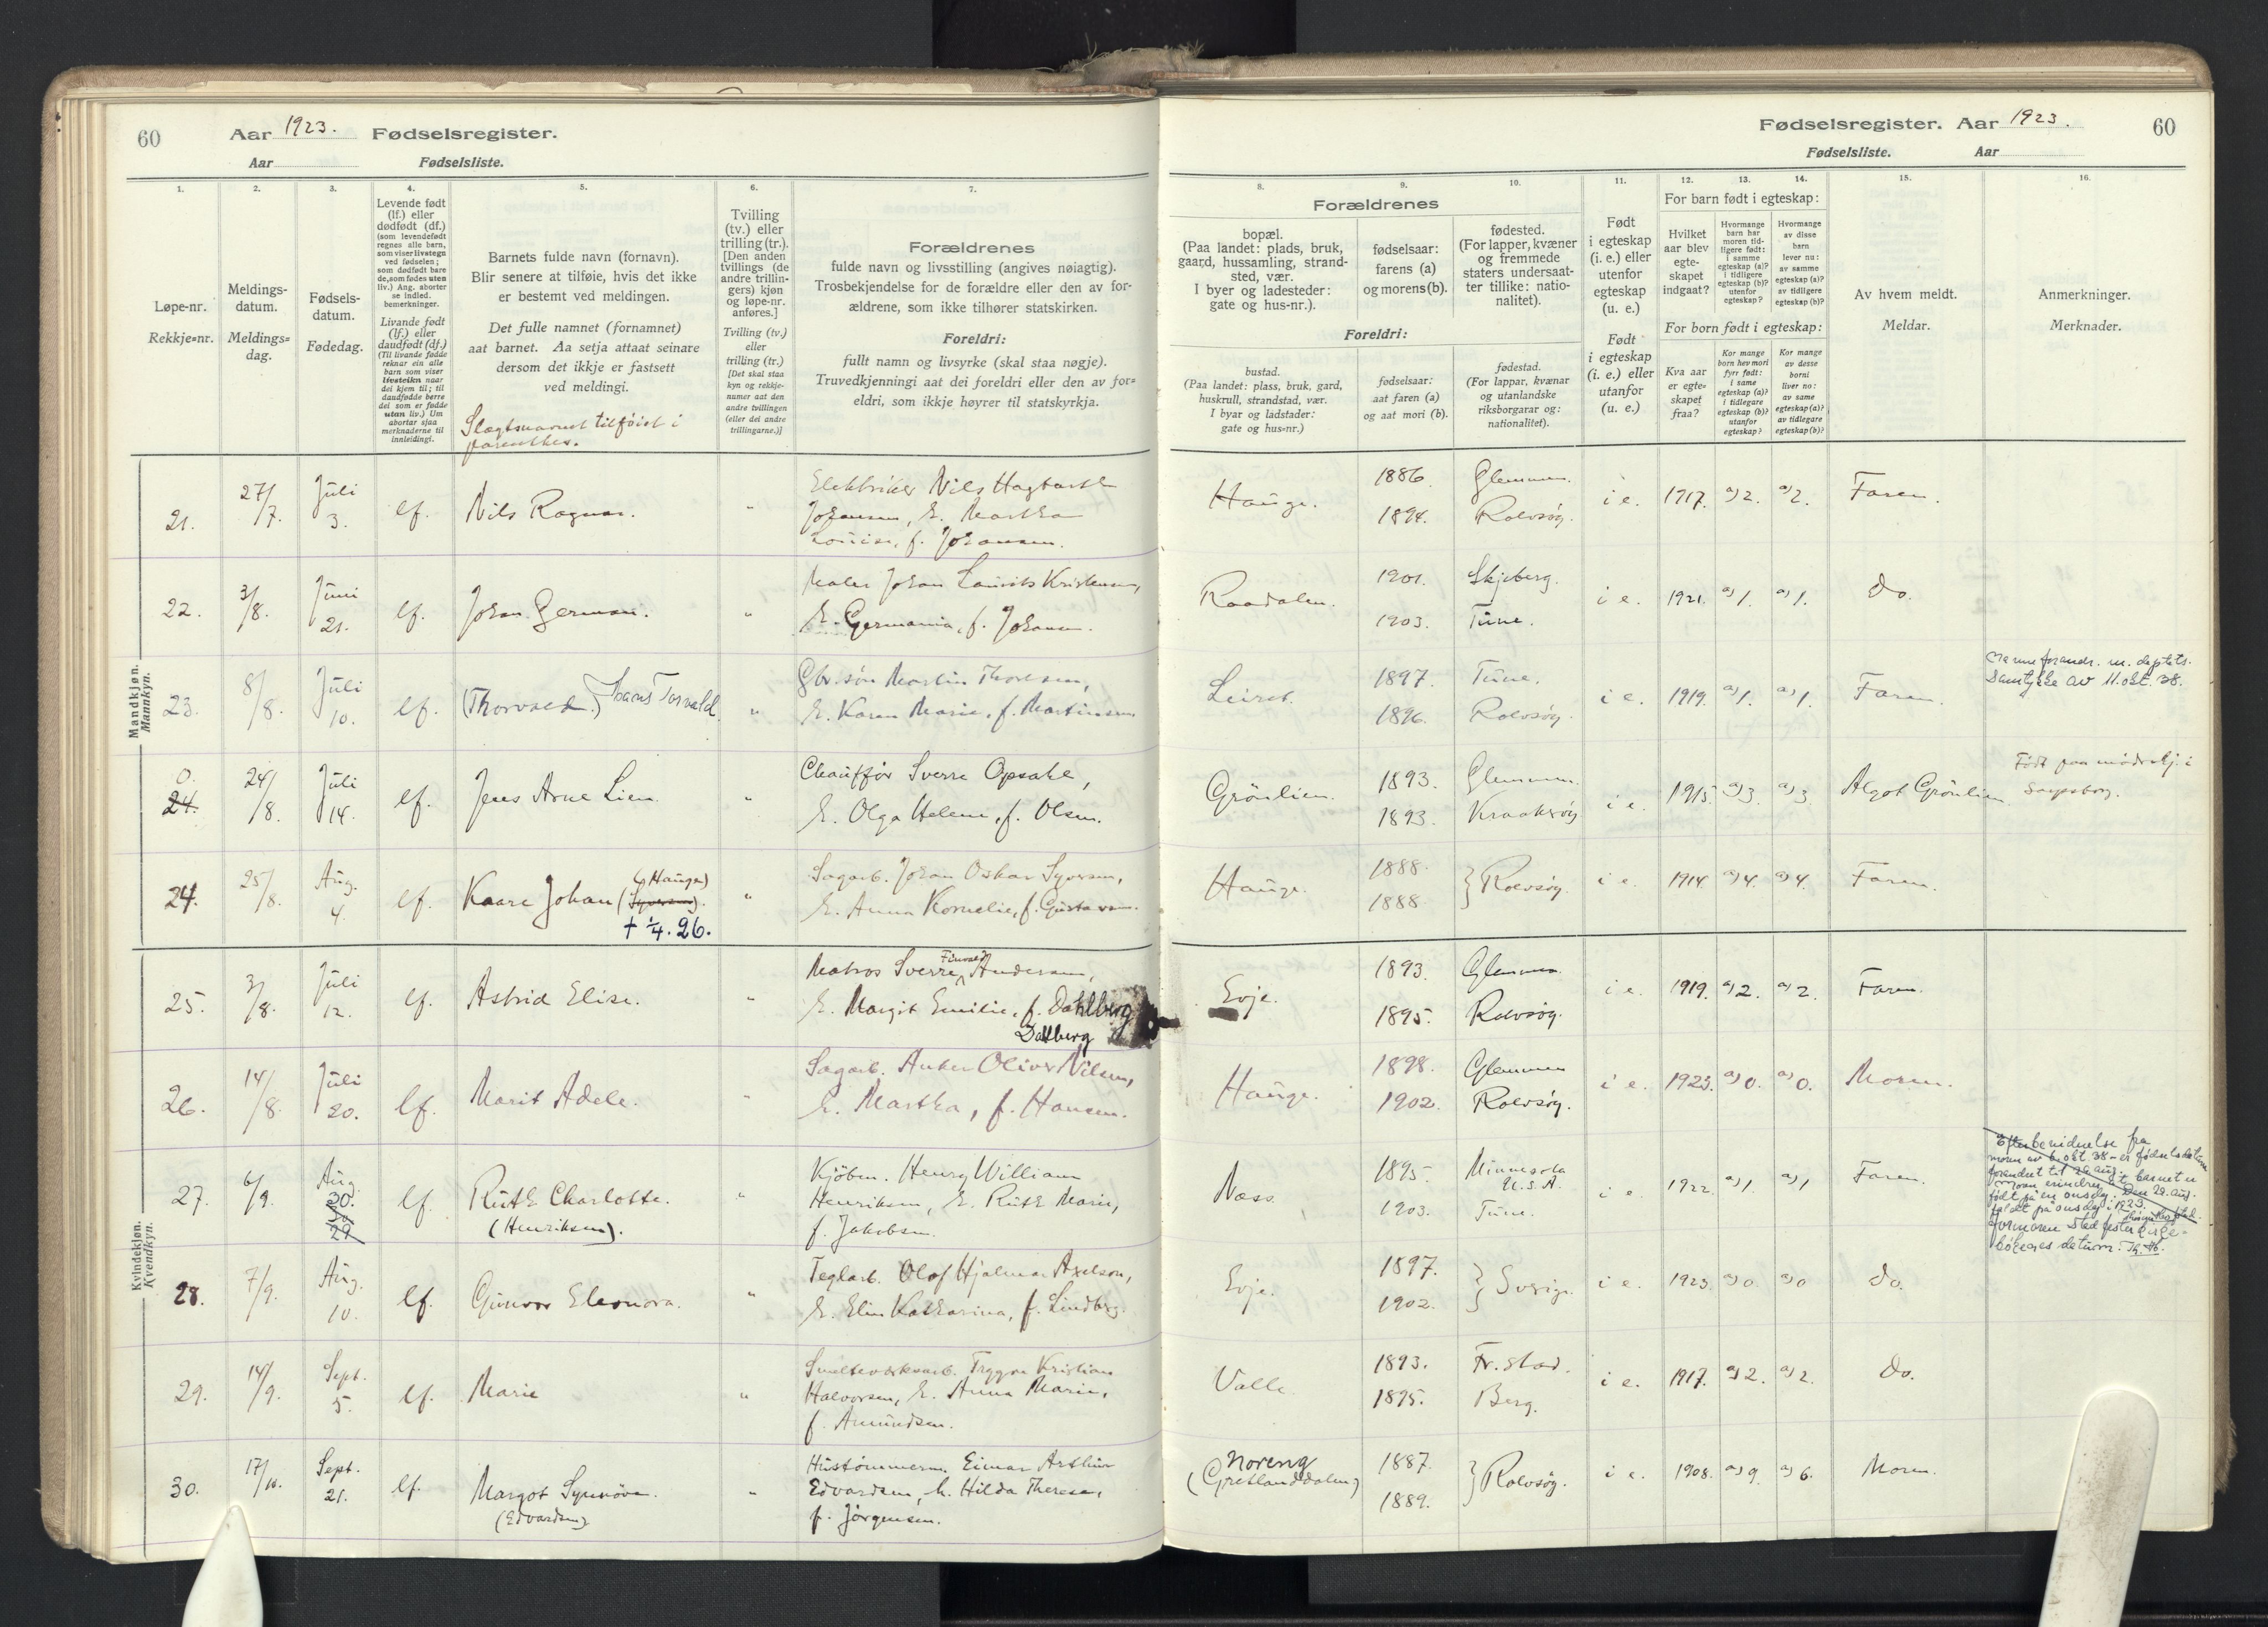 60
Aar 1923. Fødselsregister.
Aar Fødselsliste.
1.
2.
3.
4.
5.
6.
7.
Løpe-nr.
Rekkje=nr.
Meldings-
datum.
Meldings=
dag.
Fødsels-
datum.
Fødedag.
Levende født
(lf.) eller
dødfødt (df.)
(som levendefødt
regnes alle barn,
som viser livstegn
ved fødselen;
som dødfødt bare
de, som fødes uten
liv.) Ang. aborter
se indled.
bemerkninger.
Livande født
(lf.) eller
daudfødt (df.)
(Til livande fødde
reknar ein alle
barn som viser
livsteikn naar
dei kjem til; til
daudfødde berre
dei som er fødde
utan liv.) Um
abortar sjaa
merknaderne til
innleidingi.
Barnets fulde navn (fornavn).
Blir senere at tilføie, hvis det ikke
er bestemt ved meldingen.
Det fulle namnet (fornamnet)
aat barnet. Aa setja attaat seinare
dersom det ikkje er fastsett
ved meldingi.
Slægtsnavnet tilføiet i
parenthes.
Tvilling
(tv.) eller
trilling (tr.).
[Den anden
tvillings (de
andre trillin-
gers) kjøn
og løpe-nr.
anføres.]
Tvilling (tv.)
eller
trilling (tr.)
[Det skal staa
kyn og rekkje-
numer aat den
andre tvillingen
(eller dei andre
trillingarne.)]
Forældrenes
fulde navn og livsstilling (angives nøiagtig).
Trosbekjendelse for de forældre eller den av for-
ældrene, som ikke tilhører statskirken.
Foreldri:
fullt namn og livsyrke (skal staa nøgje).
Truvedkjenningi aat dei foreldri eller den av for=
eldri, som ikkje høyrer til statskyrkja.
Fødselsregister. Aar 1923. 60
Fødselsliste. Aar
8.
9.
10.
11.
12.
13.
14.
15.
16.
Forældrenes
bopæl.
(Paa landet: plads, bruk,
gaard, hussamling, strand-
sted, vær.
I byer og ladesteder:
gate og hus-nr.).
fødselsaar:
farens (a)
og morens (b).
fødested.
(For lapper, kvæner
og fremmede
staters undersaat-
ter tillike: natio-
nalitet).
Foreldri:
bustad.
(Paa landet: plass, bruk, gard,
huskrull, strandstad, vær.
I byar og ladstader:
gate og hus=nr.)
fødselsaar:
aat faren (a)
og aat mori (b).
fødestad.
(For lappar, kvænar
og utanlandske
riksborgarar og:
nationalitet).
Født
i egteskap
(i. e.) eller
utenfor
egteskap
(u. e.)
Født
i egteskap
(i. e.) eller
utanfor
(u. e.)
For barn født i egteskap:
Hvilket
aar blev
egte-
skapet
indgaat?
Hvormange
barn har
moren tid-
ligere født:
i samme
egteskap (a)?
i tidligere
egteskap (b)?
utenfor
egteskap?
Hvormange
av disse
barn
lever nu:
av samme
egteskap (a)?
av tidligere
egteskap (b)?
For born født i egteskap:
Kva aar
er egte=
skapet
fraa?
Kor mange
born hev mori
fyrr født:
i same
egteskap (a)?
i tidlegare
egteskap (b)?
utanfor
egteskap?
Kor mange
av desse
borni
liver no:
av same
egteskap (a)?
av tidlegare
egteskap (b)?
Av hvem meldt.
Meldar.
Anmerkninger.
Merknader.
Mandkjøn.
Mannkyn.
21. 27/7. Juli 3. lf. Nils Ragnar. " Elektriker Nils Hagbarth
Johansen, h. Martha
Louise, f. Johansen.
Hauge. 1886. Glemmen. 1894. Rolvsøy. i e. 1917. a) 2. a) 2. Faren.
22. 3/8. Juni 21. lf. Johan German. " Maler Johan Laurits Kristensen,
h. Germania, f. Johansen.
Raadalen. 1901. Skjeberg. 1903. Tune. i e. 1921. a) 1. a) 1. Do.
23. 8/8. Juli 10. lf. (Thorvald.) Hans Torvald. " Gbr.søn Martin Thoresen,
h. Karen Marie, f. Martinsen
Leiret. 1897. Tune. 1896. Rolvsøy. i e. 1919. a) 1. a) 1. Faren.
Navneforandr. m. deptets.
Samtykke av 11. okt. 38.
0.
24. 24/8. Juli 14. lf. Jens Arne Lien. " Chauffør Sverre Opsahl,
h. Olga Helene, f. Olsen.
Grönlien. 1893. Glemmen. 1893. Kraakerøy i e. 1915. a) 3. a) 3 Algot Grönlien
Født paa mödrehj. i
Sarpsborg.
24. 25/8. Aug. 4. lf. Kaare Johan (Syversen). (Hauge)
† 1/4. 26.
" Sagarb. Johan Oskar Syversen,
h. Anna Kornelie, f. Gustavsen.
Hauge. 1888. 1888. } Rolvsøy. i e. 1914. a) 4. a) 4. Faren.
Kvindekjøn.
Kvendkyn.
25. 3/8. Juli 12. lf. Astrid Elise. " Matros Sverre Andersen,
h. Margit Emilie, f. Dahlberg
Dahlberg
Evje. 1893. Glemmen. 1895. Rolvsøy. i e. 1919. a) 2. a) 2. Faren.
26. 14/8. Juli 20. lf. Marit Adele. " Sagarb. Anker Oliver Nilsen,
h. Martha, f. Hansen.
Hauge. 1898. Glemmen 1902. Rolvsøy. i e. 1923. a) 0. a) 0. Moren.
27. 6/9. Aug. 30. 29 lf. Ruth Charlotte.
(Henriksen).
" Kjöbm. Henry William
Henriksen, h. Ruth Marie,
f. Jakobsen.
Næss. 1895. Minnesota
U.S.A. 1903. Tune. i e. 1922. a) 1. a) 1 Faren.
Efter bevidnelse fra
moren av 6. okt 38 er fødselsdatum
forandret til 29 aug.
født på en onsdag. Den 29. aug.
faldt på onsdag i 1923.
28. 7/9. Aug. 10. lf. Gunvor Eleonora. " Teglarb. Olof Hjalmar Axelson,
h. Elin Katharina, f. Lindberg.
Evje. 1897. 1902. } Sverige. i e. 1923. a) 0. a) 0 Do.
29. 14/9. Sept. 5. lf. Marie " Smelteverksarb. Trygve Kristian
Halvorsen, h. Anna Marie,
f. Amundsen.
Valle. 1893. Fr.stad. 1895. Berg. i e. 1917. a) 2. a) 2. Do.
30. 17/10. Sept. 21. lf. Margot Synnöve.
(Edvardsen)
" Hustömmerm. Einar Arthur
Edvardsen, h. Hilda Therese,
f. Jörgensen.
Noreng
(Gretlanddalen) 1887. 1889. } Rolvsøy. i e. 1908. a) 9. a) 6. Moren.